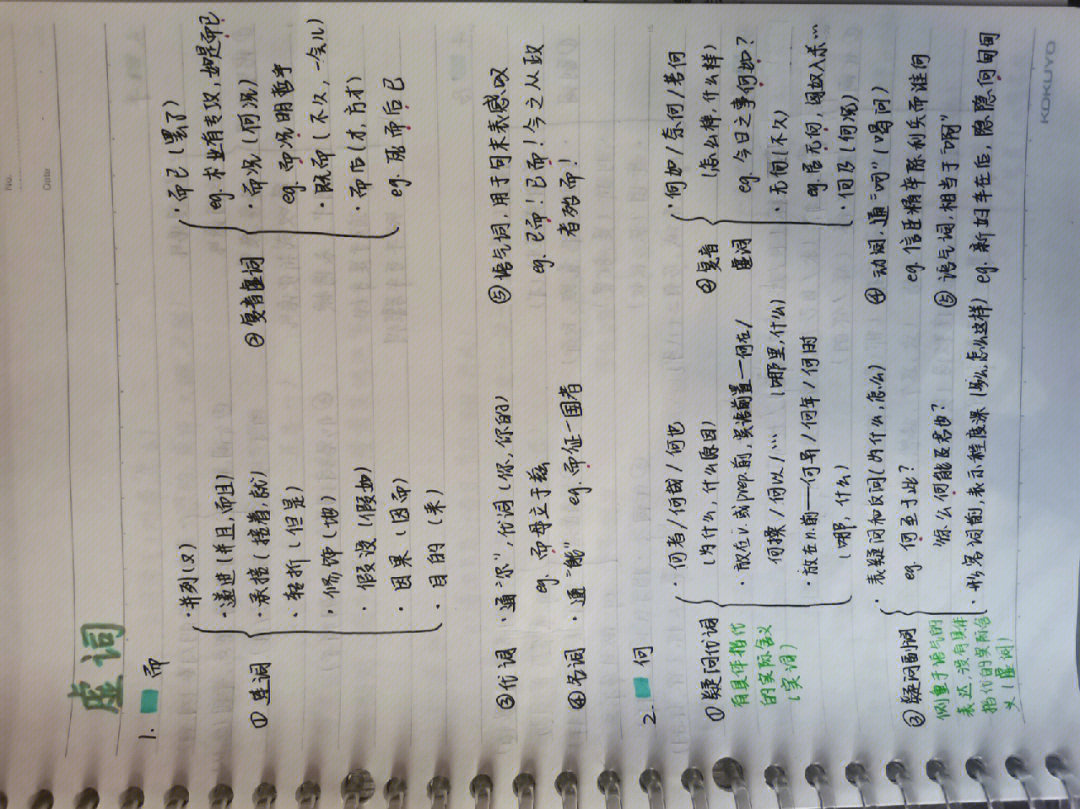 No.
Date
虚词
1. 而
① 连词
· 并列(又)
· 递进(并且,而且)
· 承接(接着,就)
· 转折(但是)
· 修饰(地)
· 假设(假如)
· 因果(因而)
· 目的(来)
② 复音虚词
· 而已(罢了)
eg. 术业有专攻,如是而已
· 而况(何况)
eg. 而况明哲乎
· 既而(不久,一会儿)
· 而后(才,方才)
eg. 死而后已
③ 代词 · 通“尔”,代词(你,你的)
eg. 而母立于兹
④ 名词 · 通“能” eg. 而征一国者
⑤ 语气词,用于句末表感叹
eg. 已而!已而!今之从政
者殆而!
2. 何
① 疑问代词
有具体指代
的实际含义
(实词)
· 何者/何哉/何也
(为什么,什么原因)
· 放在v.或prep.前,宾语前置—何在/
何操/何以/… (哪里,什么)
· 放在n.前—何异/何年/何时
(哪,什么)
② 复音
虚词
· 何如/奈何/若何
(怎么样,什么样)
eg. 今日之事何如?
· 无何(不久)
eg. 居无何,匈奴入杀…
· 何乃(何况)
③ 疑问副词
侧重于语气的
表达,没有具体
指代的实际含
义(虚词)
· 表疑问和反问(为什么,怎么)
eg. 何至于此?
你么何能及君也?
· 形容词前,表示程度深(多么,怎么这样)
④ 动词,通“呵”(喝问)
eg. 信臣精卒陈利兵而谁何
⑤ 语气词,相当于“啊”
eg. 新妇车在后,隐隐何甸甸
KOKUYO